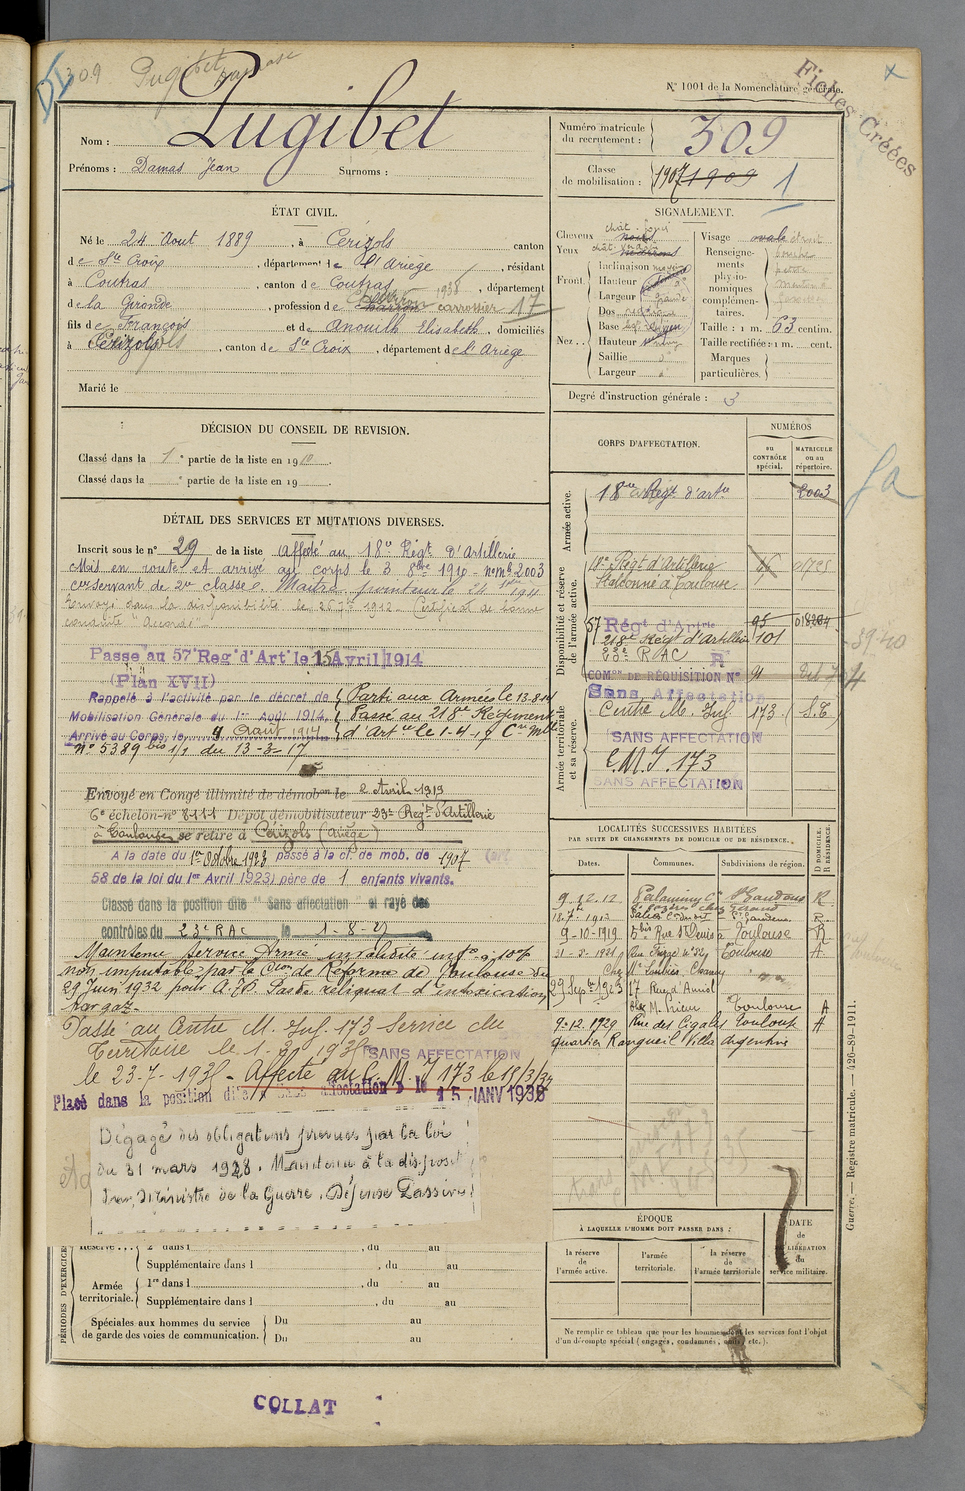 309
N° 1001 de la Nomenclature générale.
Fiches Créées
Nom : Pugibet
Prénoms : Damas Jean Surnoms :
Numéro matricule du recrutement : 309
Classe de mobilisation : 1907 1909 1
ÉTAT CIVIL.
Né le 24 Aout 1889, à Cérizols canton
de Ste Croix, département de l'Ariège, résidant
à Coutras, canton de Coutras, département
de la Gironde, profession de charron carrossier 17
fils de François et de Anouilh Elisabeth, domiciliés
à Cérizols, canton de Ste Croix, département de l'Ariège
Marié le
SIGNALEMENT.
Cheveux
Yeux
Front.
Inclinaison
Hauteur
Largeur
Nez..
Dos
Base
Hauteur
Saillie
Largeur
Visage ovale
Renseignements physionomiques complémentaires.
Taille : 1 m. 63 centim.
Taille rectifiée : 1 m. cent.
Marques particulières.
Degré d'instruction générale : 3
DÉCISION DU CONSEIL DE REVISION.
Classé dans la 1e partie de la liste en 1910.
Classé dans la e partie de la liste en 19 .
DÉTAIL DES SERVICES ET MUTATIONS DIVERSES.
Inscrit sous le n° 29 de la liste Affecté au 18e Régt d'Artillerie
Mis en route et arrivé au corps le 3 8bre 1910 - n° mle 2003
Cer servant de 2e classe. Maître pointeur le 24
Envoyé dans la disponibilité le 25 7bre 1912. Certificat de bonne
conduite "Accordé"
Passé au 57e Reg't d'Art'ie le 15 Avril 1914
(Plan XVII)
Rappelé à l'activité par le décret de
Mobilisation Générale du 1er Août 1914.
Arrivé au Corps, le 9 Août 1914
Parti aux Armées le 13-8-14
Passé au 218e Régiment
d'Artie le 1-4-17 Con Mlle
n° 5389 bis 1/1 du 13-3-17
Envoyé en Congé illimité de démobon le 2 Avril 1919
6e échelon n° 8111 Dépôt démobilisateur 23e Régt d'Artillerie
à Toulouse se retire à Cérizols (Ariège)
A la date du 1er Octobre 1923 passé à la cl. de mob. de 1907 (art.
58 de la loi du 1er Avril 1923) père de 1 enfants vivants.
Classé dans la position dite "Sans affectation" et rayé des
contrôles du 23e RAC le 1-8-27
Maintenu Service Armé invalidité infre à 10%
non imputable par la Cion de Réforme de Toulouse du
29 Juin 1932 pour A.P. Pas de reliquat d'intoxication
par gaz.
Passé au Centre M. Inf. 173 Service du
Territoire le
SANS AFFECTATION
le 23-7-1935 - Affecté au C.M.I 173 le 18/3/37
Placé dans la position dite sans affectation le 15 JANV 1938
Dégagé des obligations prévues par la loi
du 31 mars 1928. Maintenu à la disposit
du Ministre de la Guerre. Défense Passive
CORPS D'AFFECTATION.
NUMÉROS
au CONTRÔLE spécial.
MATRICULE ou au répertoire.
Armée active.
18e Régt d'artie 2003
Disponibilité et réserve de l'armée active.
18e Régt d'Artillerie
Stationné à Toulouse
57 Régt d'Artie 95
218e Régt d'Artillerie 101
RAC
COMon DE RÉQUISITION N° 91
Sans Affectation
Armée territoriale et sa réserve.
Centre M. Inf. 173 (S.T.)
SANS AFFECTATION
C.M.I. 173
SANS AFFECTATION
39-40
LOCALITÉS SUCCESSIVES HABITÉES
PAR SUITE DE CHANGEMENTS DE DOMICILE OU DE RÉSIDENCE.
Dates. Communes. Subdivisions de région. D DOMICILE. R RÉSIDENCE.
9.12.12 Palaminy St Gaudens R.
18.7.1913 St Gaudens R.
9-10-1919 5bis Rue St Denis à Toulouse R
Toulouse A
Toulouse A
9-12-1929 Rue des Cigales Toulouse A
quartier Rangueil Villa Argentine
ÉPOQUE
À LAQUELLE L'HOMME DOIT PASSER DANS :
la réserve de l'armée active.
l'armée territoriale.
la réserve de l'armée territoriale
DATE de LIBÉRATION du service militaire.
PÉRIODES D'EXERCICES
Réserve... 2e dans l , du au
Supplémentaire dans l , du au
Armée territoriale.
1re dans l , du au
Supplémentaire dans l , du au
Spéciales aux hommes du service de garde des voies de communication.
Du au
Du au
Ne remplir ce tableau que pour les hommes dont les services font l'objet
d'un décompte spécial (engagés, condamnés, omis, etc.).
Guerre. — Registre matricule. — 426-89-1911.
COLLAT